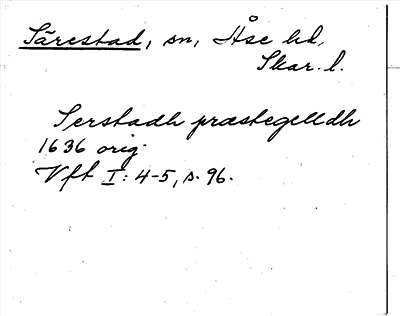 Särestad, sn, Åse hd,
Skar. l.
Serstadh præstegelldh
1636 orig.
Vft I: 4-5, s. 96.